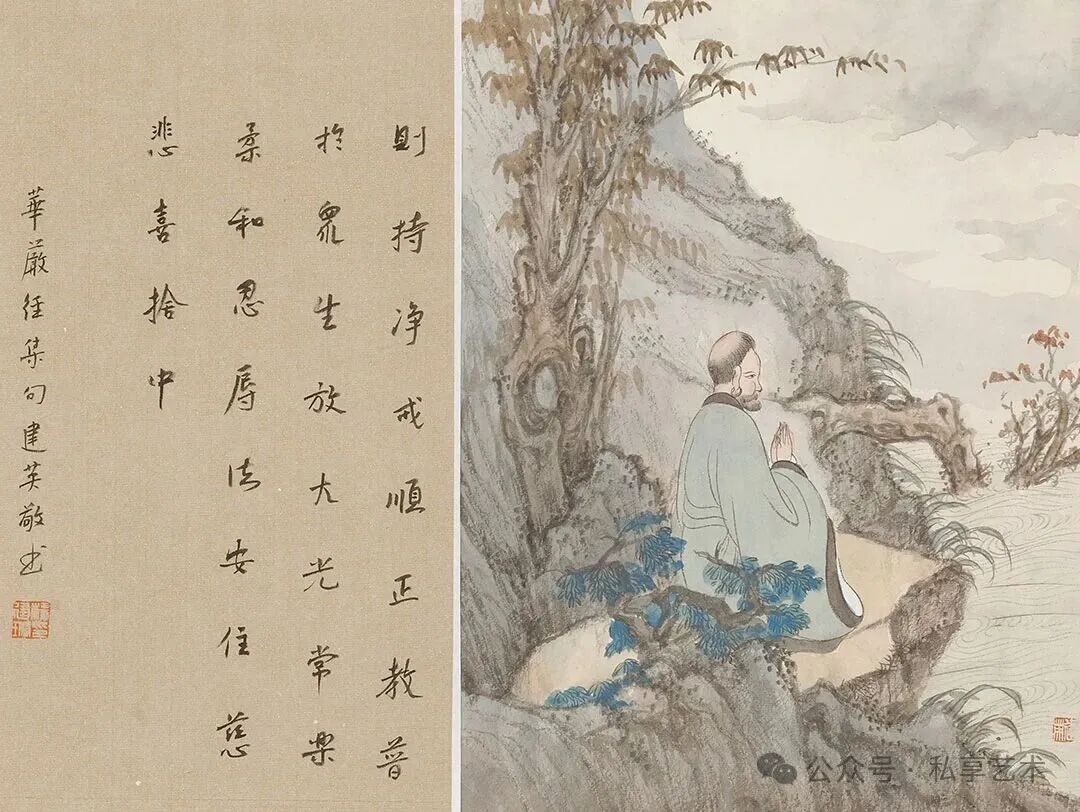 則持净戒順正教普
於眾生放大光常樂
柔和忍辱法安住慈
悲喜捨中
華嚴經集句建英敬书
公众号·私享艺术